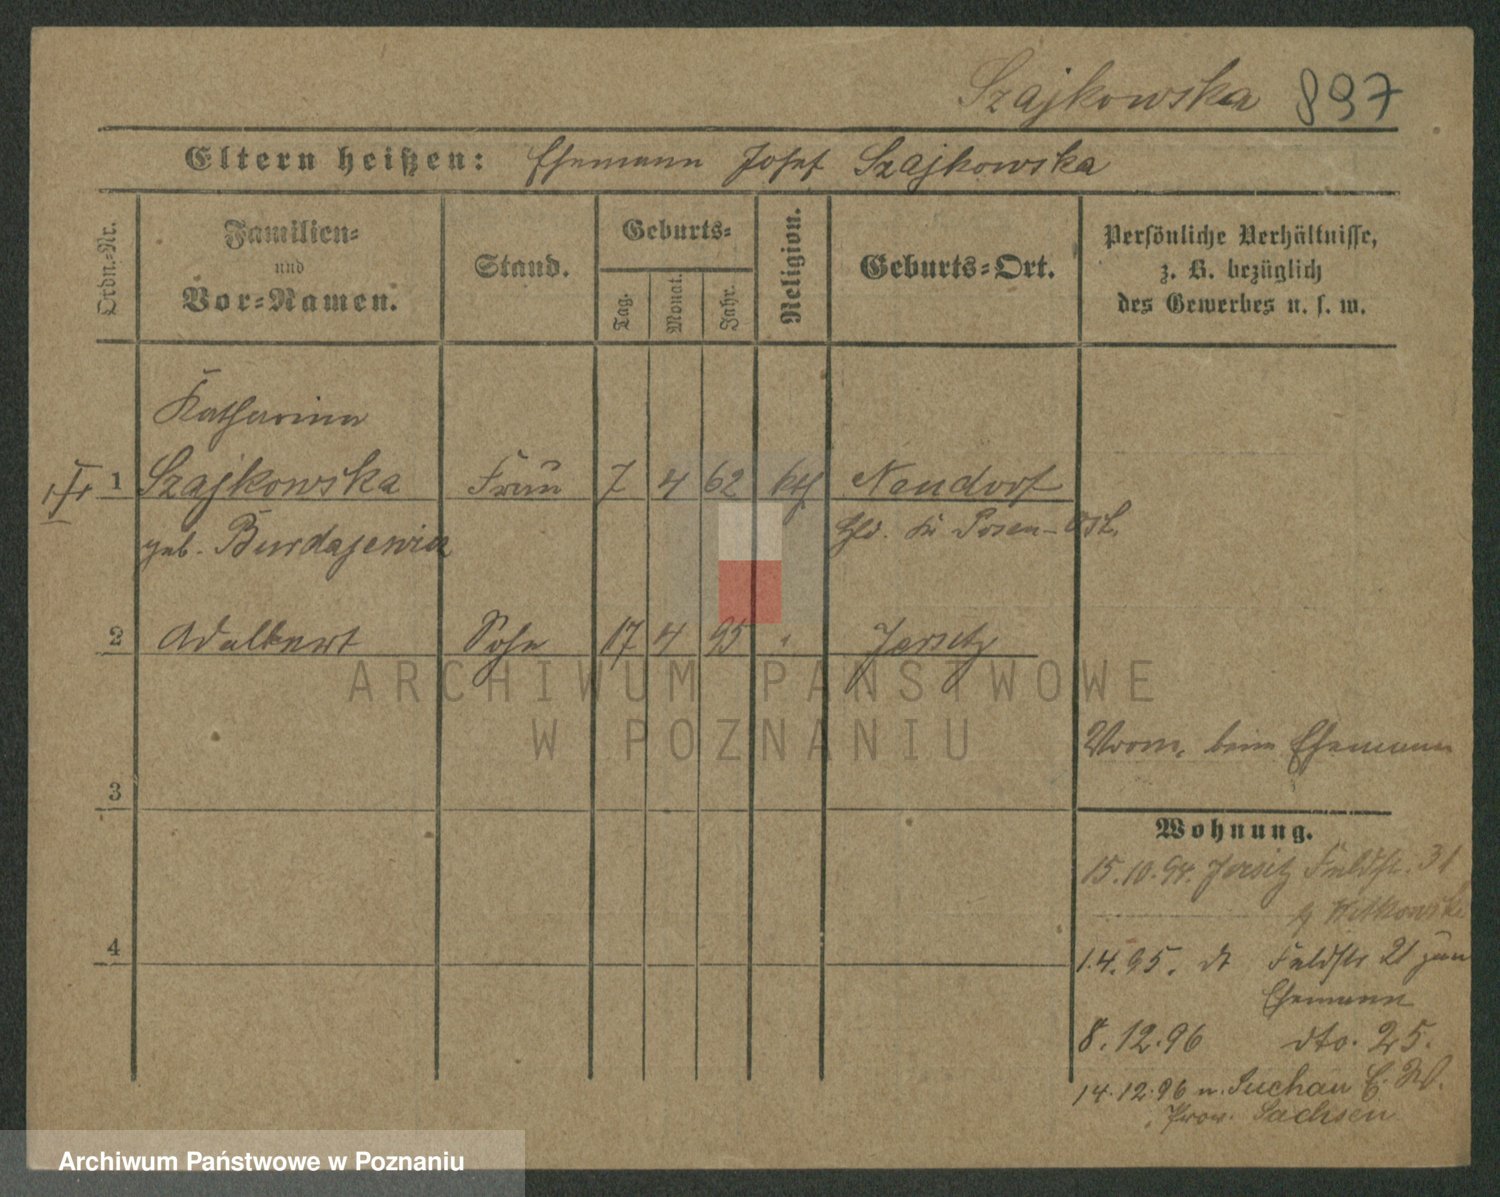 Szajkowska 897
Eltern heißen: Ehemann Josef Szajkowska
Ordn.-Nr.
Familien-
und
Vor-Namen.
Stand.
Geburts-
Tag.
Monat.
Jahr.
Religion.
Geburts-Ort.
Persönliche Verhältnisse,
z. B. bezüglich
des Gewerbes u. s. w.
Katharina
1 Szajkowska Frau 7 4 62 kth Neudorf
geb. Burdajewicz Kr. Posen-Ost.
2 Adalbert Sohn 17 4 95 " Jersitz
ARCHIWUM PAŃSTWOWE
W POZNANIU
beim Ehemann
3
Wohnung.
15.10.94. Jersitz Feldstr. 31
Witkowski
4
1.4.95. dt Feldstr 21 zum
Ehemann
8.12.96 dto. 25.
14.12.96 n. Suchau
Prov. Sachsen
Archiwum Państwowe w Poznaniu